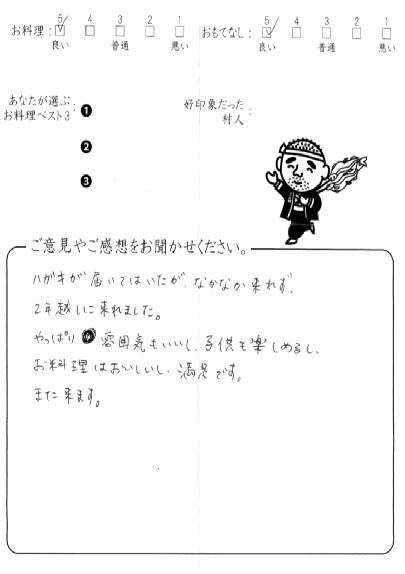 お料理： 5 4 3 2 1 おもてなし： 5 4 3 2 1
良い 普通 悪い 良い 普通 悪い
あなたが選ぶ
お料理ベスト3：
❶
❷
❸
好印象だった
村人：
ご意見やご感想をお聞かせください。
ハガキが届いてはいたが、なかなか来れず、
2年越しに来れました。
やっぱり 雰囲気もいいし、子供も楽しめるし、
お料理はおいしいし、満足です。
また来ます。